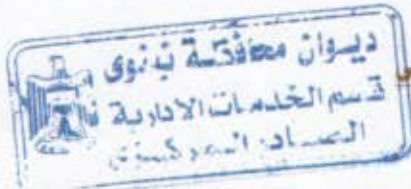 ديوان محافظة نينوى
قسم الخدمات الادارية
الصادر المركزي